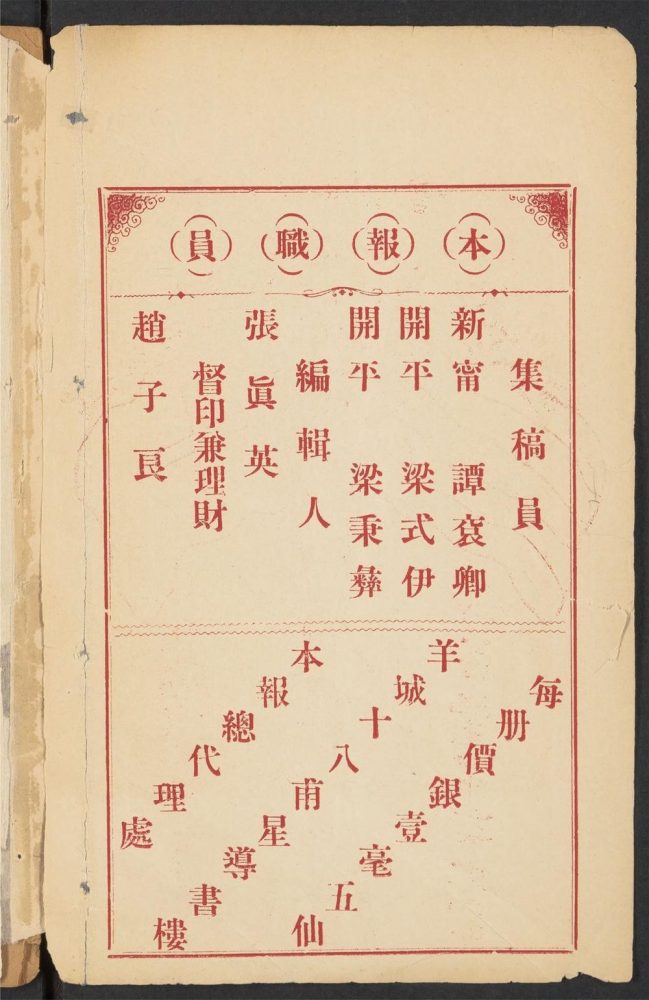 本報職員
集稿員
新甯 譚袞卿
開平 梁式伊
開平 梁秉彝
編輯人
張眞英
督印兼理財
趙子良
每册價銀壹毫五仙
羊城十八甫星導書樓
本報總代理處